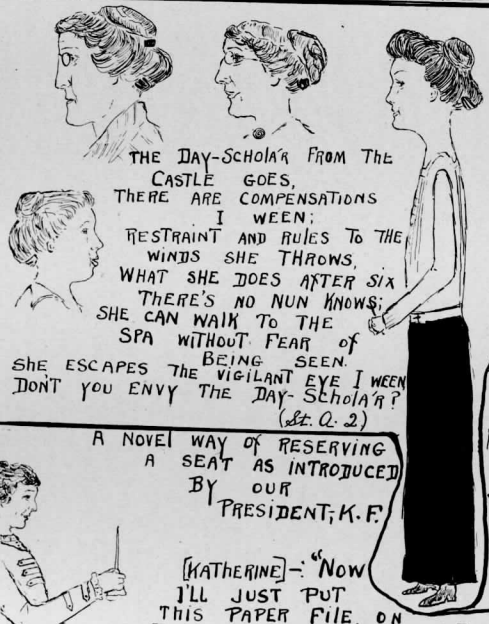 THE DAY-SCHOLA'R FROM THE
CASTLE GOES,
THERE ARE COMPENSATIONS
I WEEN;
RESTRAINT AND RULES TO THE
WINDS SHE THROWS,
WHAT SHE DOES AFTER SIX
THERE'S NO NUN KNOWS;
SHE CAN WALK TO THE
SPA WITHOUT FEAR of
BEING SEEN.
SHE ESCAPES THE VIGILANT EYE I WEEN
DON'T YOU ENVY THE DAY-SCHOLA'R?
(St. A. 2)
A NOVEL WAY of RESERVING
A SEAT AS INTRODUCED
BY OUR
PRESIDENT, K.F.
[KATHERINE]-: "NOW
I'LL JUST PUT
THIS PAPER FILE ON